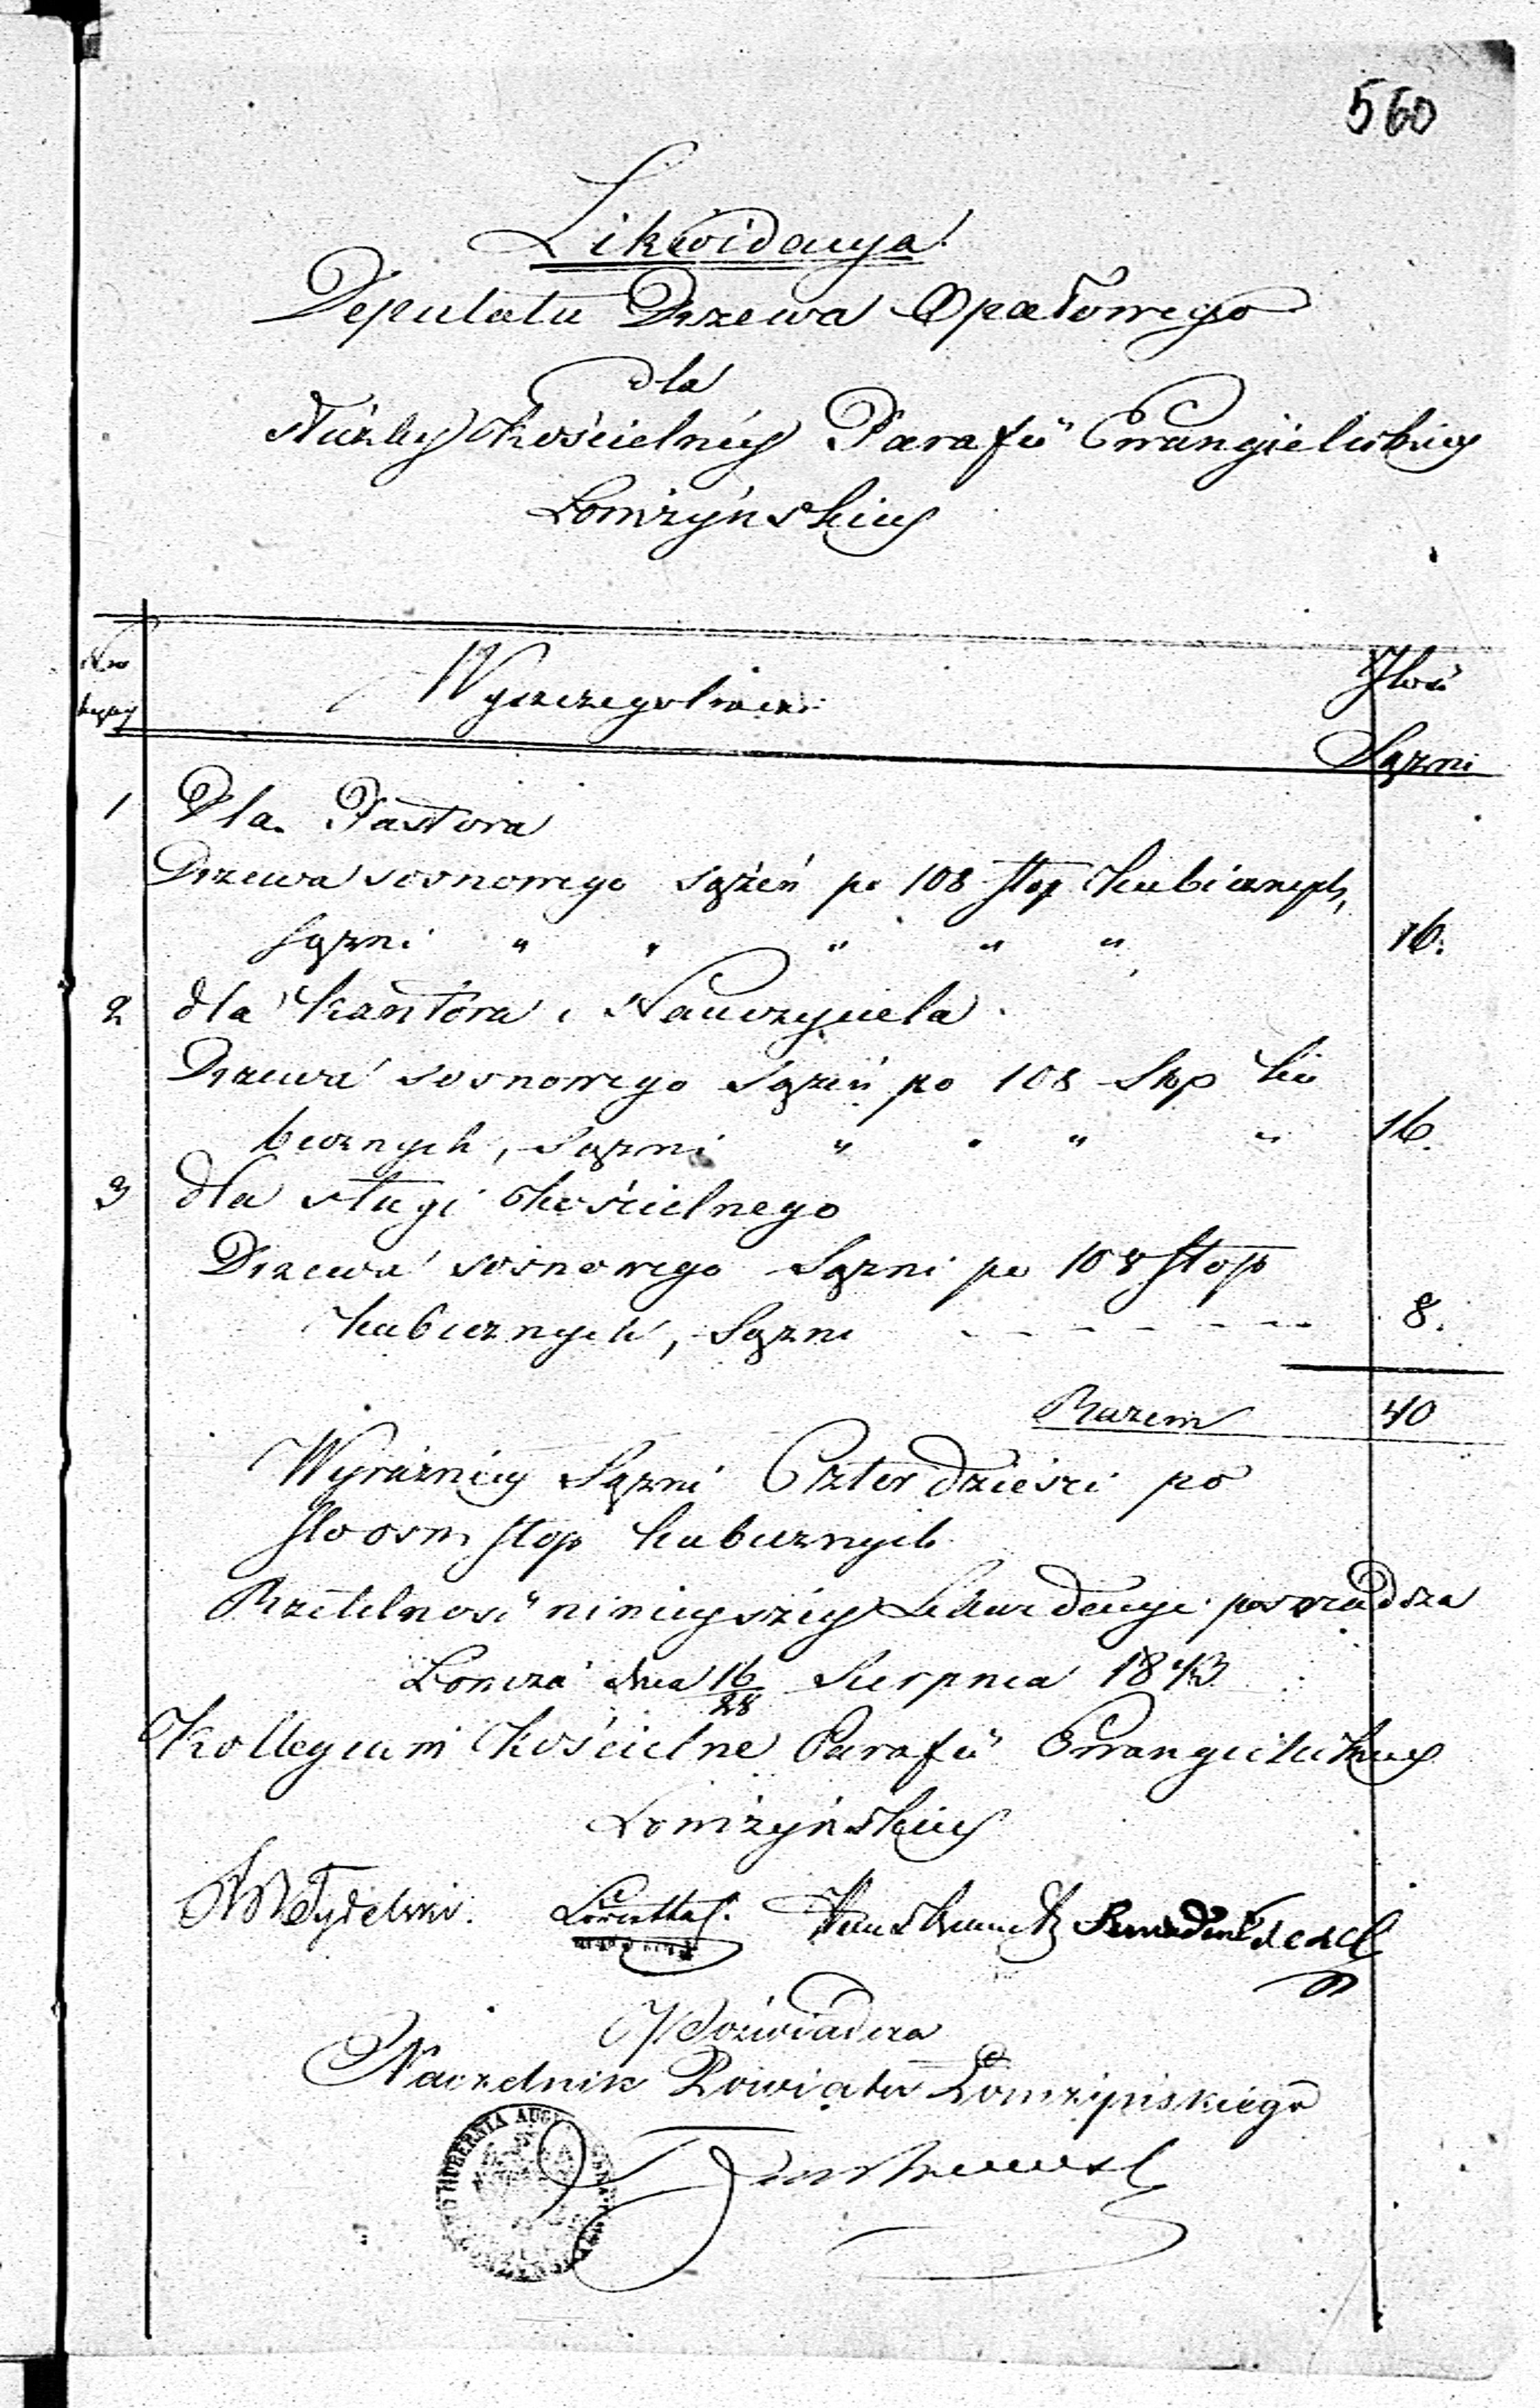 560
Likwidacya
Deputatu Drzewa Opałowego
dla
Służby Kościelnéy Parafii Ewangielickiey
Łomżyńskiey
Nro
Wyszczegolnienie
Ilość
Sązni
1 Dla Pastora
Drzewa sosnowego sążeń po 108 stop kubicznych,
Sązni " " " " " 16.
2 dla Kantora i Nauczyciela
Drzewa sosnowego Sążeń po 108 Stop ku
bicznych, Sązni " " " " 16.
3 dla sługi Kościelnego
Drzewa sosnowego Sązni po 108 stop
kubicznych, Sązni - - - - - - 8.
Razem 40
Wyraźniey Sązni Czterdzieści po
sto osm stop kubicznych
Rzetelność ninieyszéy Likwidacyi poswiadcza
Łomża dnia 16/28 Sierpnia 1843
Kollegium Kościelne Parafii Ewangielickiey
Łomżyńskiey
Loewenthal.
Poświadcza
Naczelnik Powiatu Łomżyńskiego
GUBERNIA AUGU